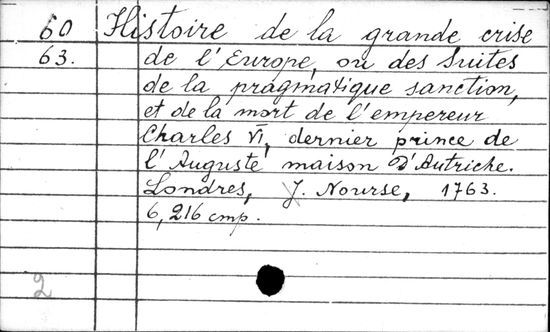 60 Histoire de la grande crise
63. de l'Europe, ou des suites
de la pragmatique sanction,
et de la mort de l'empereur
Charles VI, dernier prince de
l'Auguste maison D'Autriche.
Londres, J. Nourse, 1763.
6, 216 cmp.
2